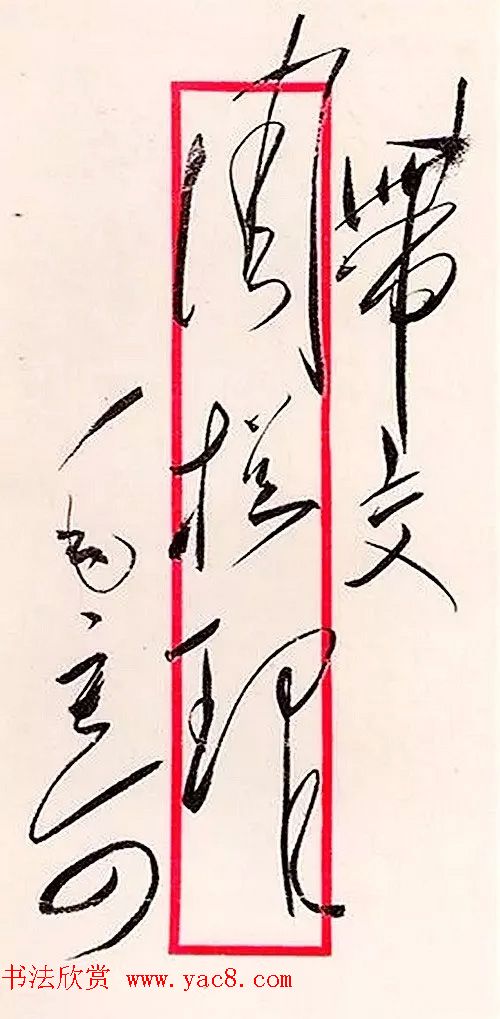 帶交
周總理
毛寄
书法欣赏 www.yac8.com